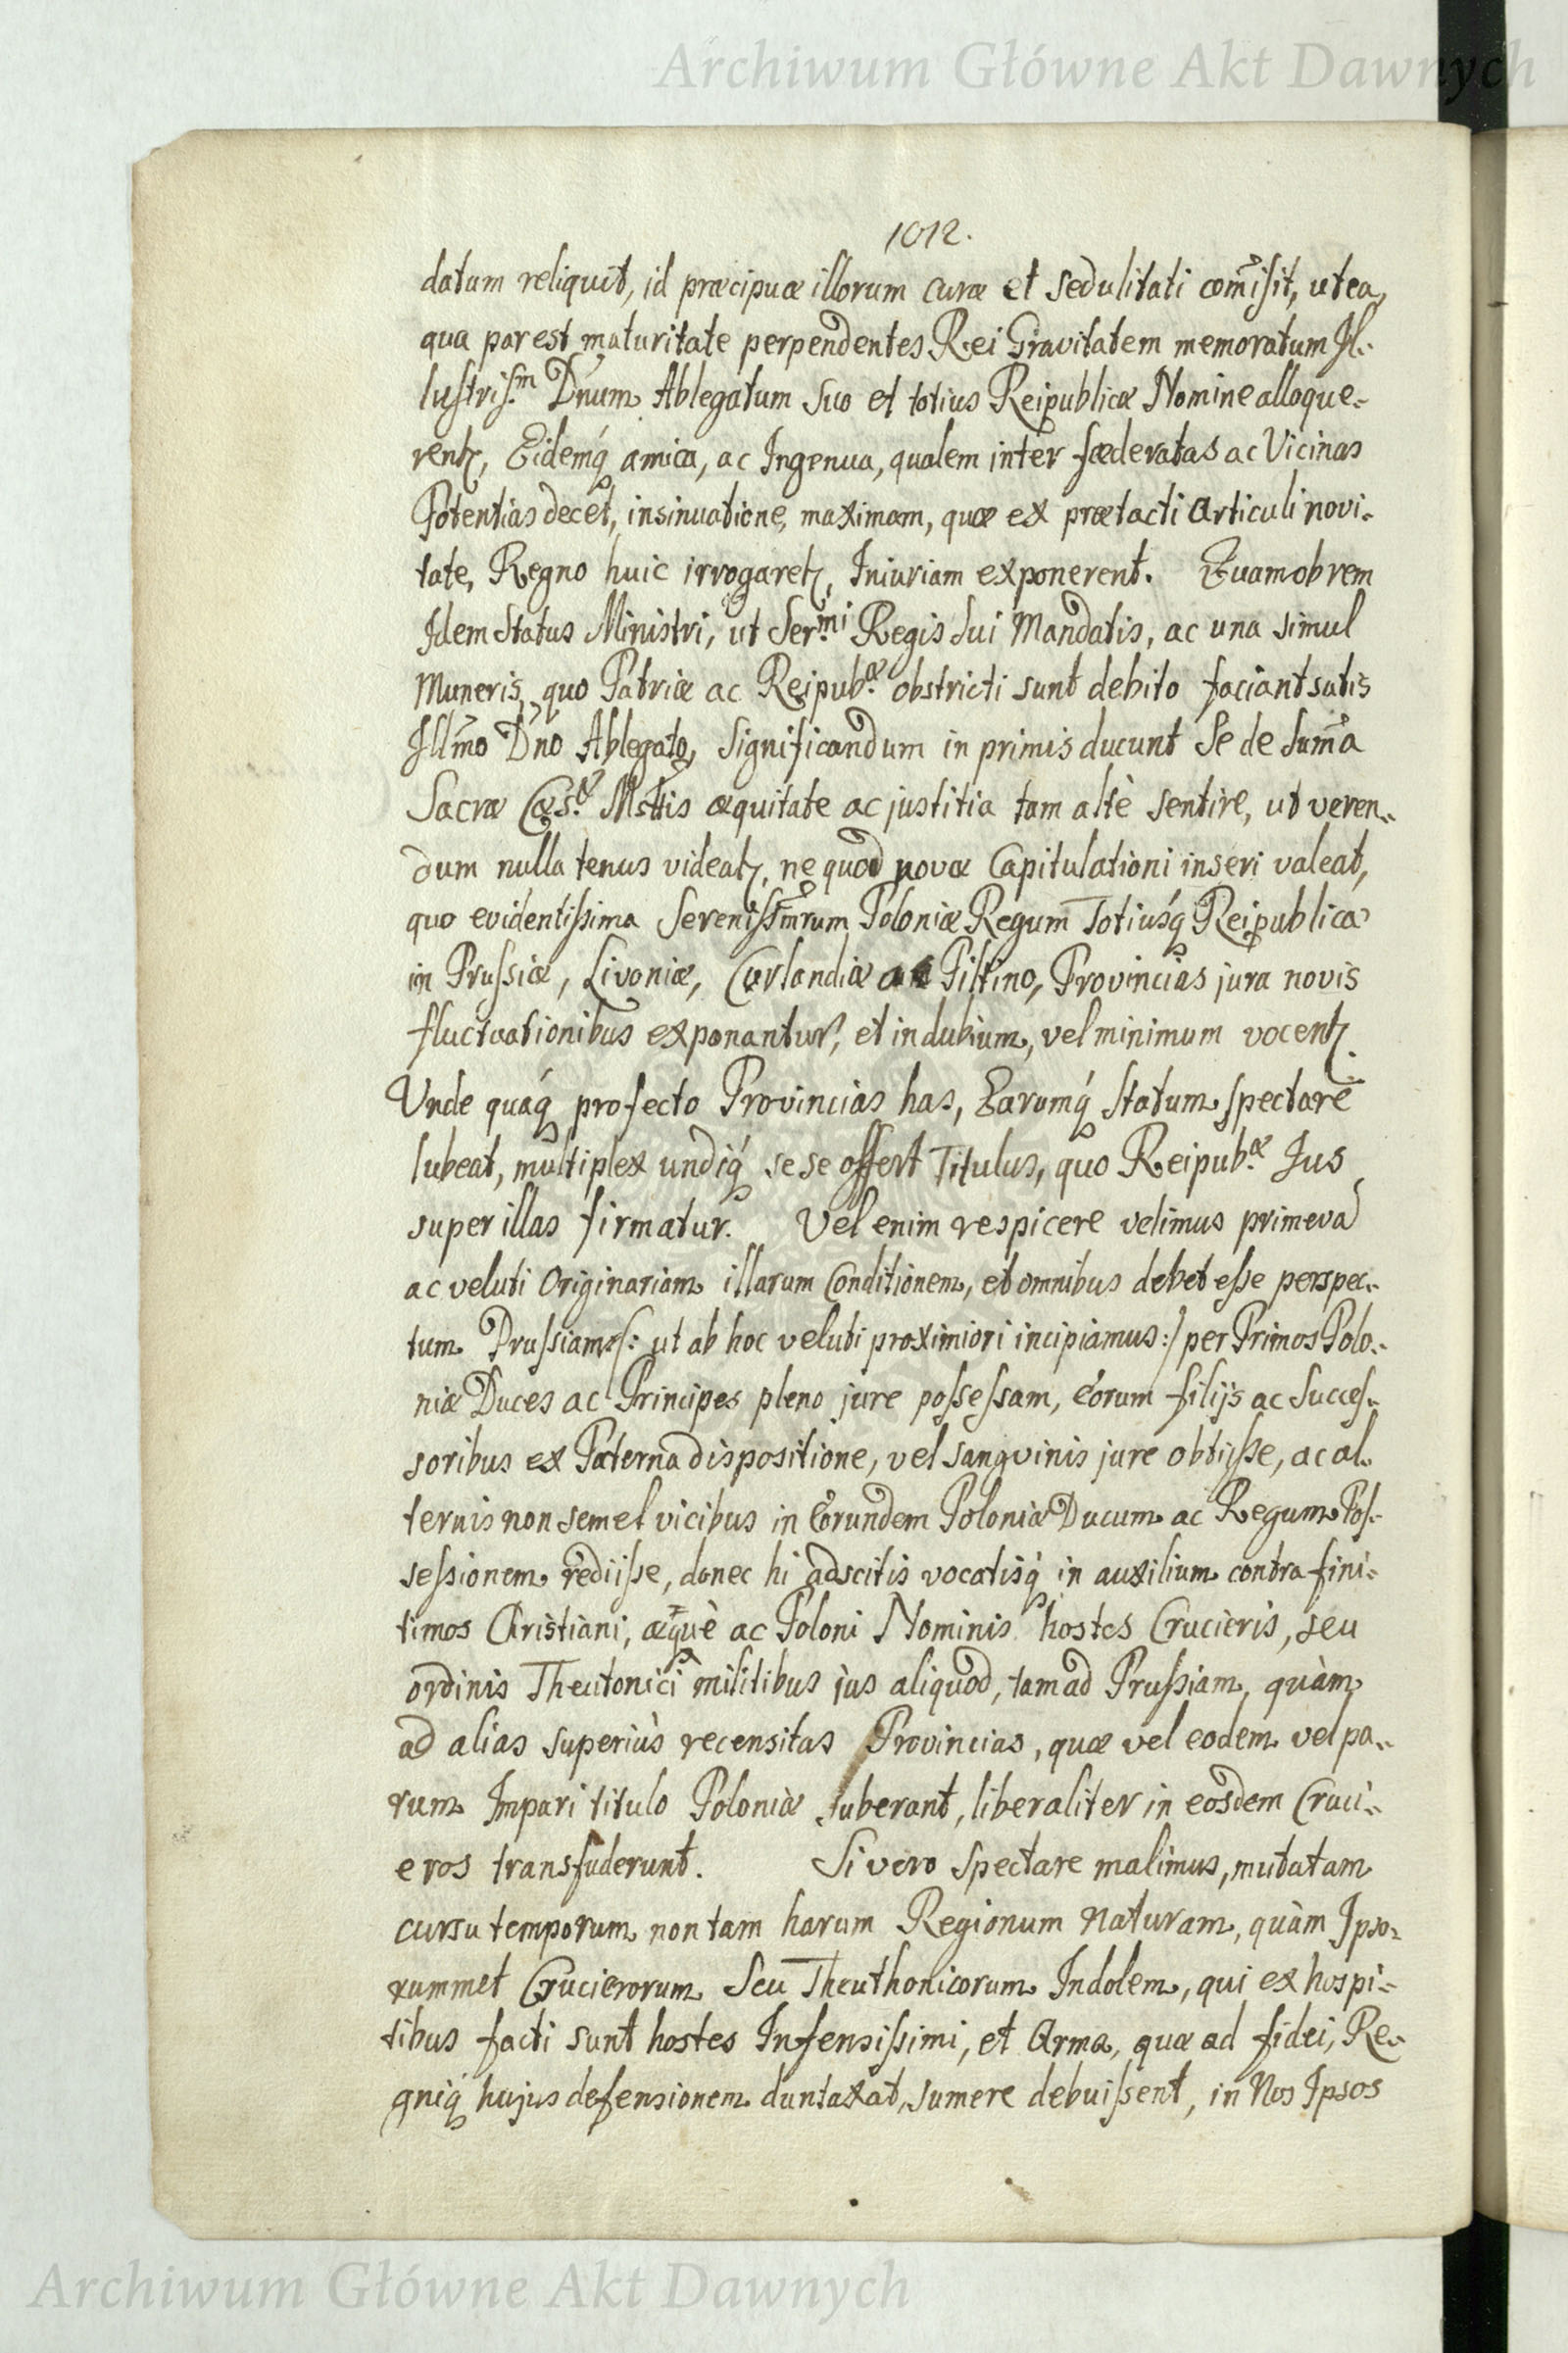 Archiwum Główne Akt Dawnych
1012.
datam reliquit, id præcipuæ illorum curæ et sedulitati com̃isit, ut ea,
qua par est maturitate perpendentes Rei Gravitatem memoratum Il-
lustriss.m Dñum Ablegatum suo et totius Reipublicæ Nomine alloque-
rentr, Eidemq́ amica, ac Ingenua, qualem inter fœderatas ac Vicinas
Potentias decet, insinuatione, maximam, quæ ex prætacti Articuli novi-
tate, Regno huic irrogaretr, Iniuriam exponerent. Quamobrem
Idem Status Ministri, ut Ser.mi Regis Sui Mandatis, ac una simul
Muneris, quo Patriæ ac Reipub.æ obstricti sunt debito faciant satis
Illm̃o Dño Ablegato, significandum in primis ducunt Se de Sum̃a
Sacræ Cæs.æ Mttis æquitate ac justitia tam altè sentire, ut veren-
dum nulla tenus videatr, ne quod novæ Capitulationi inseri valeat,
quo evidentissima Serenissm̃rum Poloniæ Regum Totiusq́ Reipublicæ
in Prussiæ, Livoniæ, Curlandiæ ac Piltino, Provincias jura novis
fluctuationibus exponantur, et in dubium, vel minimum vocentr.
Unde quáq́ profecto Provincias has, Earumq́ Statum spectare
lubeat, multiplex undiq́ se se offert Titulus, quo Reipub.æ Jus
super illas firmatur. Vel enim respicere velimus primeva
ac veluti Originariam illarum Conditionem, et omnibus debet esse perspec-
tum Prussiam /: ut ab hoc veluti proximiori incipiamus :/ per Primos Polo-
niæ Duces ac Principes pleno jure possessam, eorum filijs ac Succes-
soribus ex Paterna dispositione, vel sanguinis jure obtijsse, ac al
ternis non semel vicibus in Eorundem Poloniæ Ducum ac Regum Pos-
sessionem rediisse, donec hi adscitis vocatisq́ in auxilium contra fini-
timos Christiani, æquè ac Poloni Nominis hostes Crucieris, seu
ordinis Theutonici militibus jus aliquod, tam ad Prussiam, quàm
ad alias superiùs recensitas Provincias, quæ vel eodem vel pa-
rum Impari titulo Poloniæ suberant, liberaliter in eosdem Cruci-
eros transfuderunt. Si vero spectare malimus, mutatam
cursu temporum non tam harum Regionum naturam, quàm Ipso-
rummet Crucierorum Seu Theuthonicorum Indolem, qui ex hospi-
tibus facti sunt hostes Infensissimi, et Arma, quæ ad fidei, Re-
gniq́ hujus defensionem duntaxat, sumere debuissent, in Nos Ipsos
Archiwum Główne Akt Dawnych